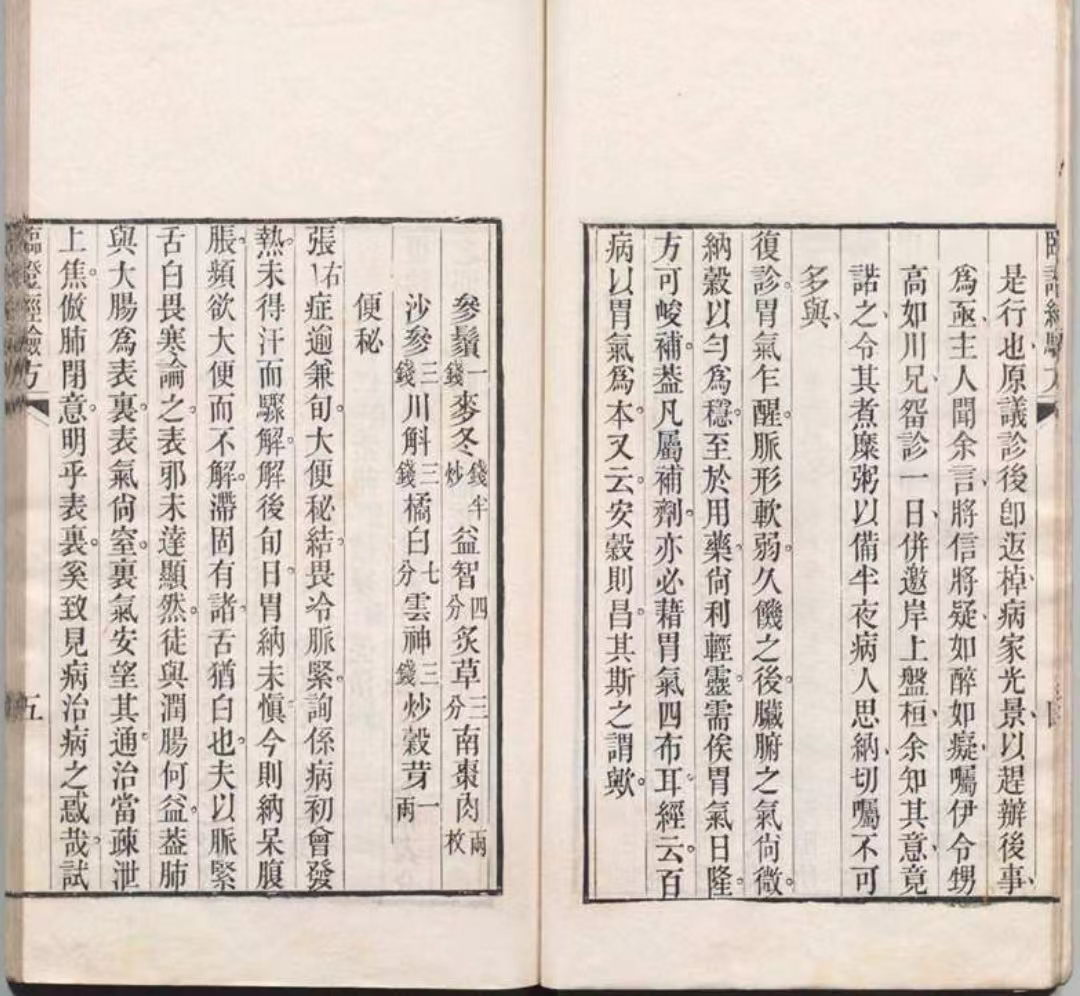 臨證經驗方
四
是行也原議診後卽返棹病家光景以趕辦後事
爲亟主人聞余言將信將疑如醉如癡囑伊令甥
高如川兄畱診一日併邀岸上盤桓余知其意竟
諾之令其煮糜粥以備半夜病人思納切囑不可
多與
復診胃氣乍醒脈形軟弱久饑之後臟腑之氣尙微
納穀以勻爲穩至於用藥尙利輕靈需俟胃氣日隆
方可峻補葢凡屬補劑亦必藉胃氣四布耳經云百
病以胃氣爲本又云安穀則昌其斯之謂歟
參鬚一錢麥冬錢半炒益智四分炙草三分南棗肉兩枚
沙參三錢川斛三錢橘白七分雲神三錢炒穀芽一兩
便秘
張右症逾兼旬大便秘結畏冷脈緊詢係病初曾發
熱未得汗而驟解解後旬日胃納未慎今則納呆腹
脹頻欲大便而不解滯固有諸舌猶白也夫以脈緊
舌白畏寒論之表邪未達顯然徒與潤腸何益葢肺
與大腸爲表裏表氣尙窒裏氣安望其通治當疎泄
上焦倣肺閉意明乎表裏奚致見病治病之惑哉試
臨證經驗方
五